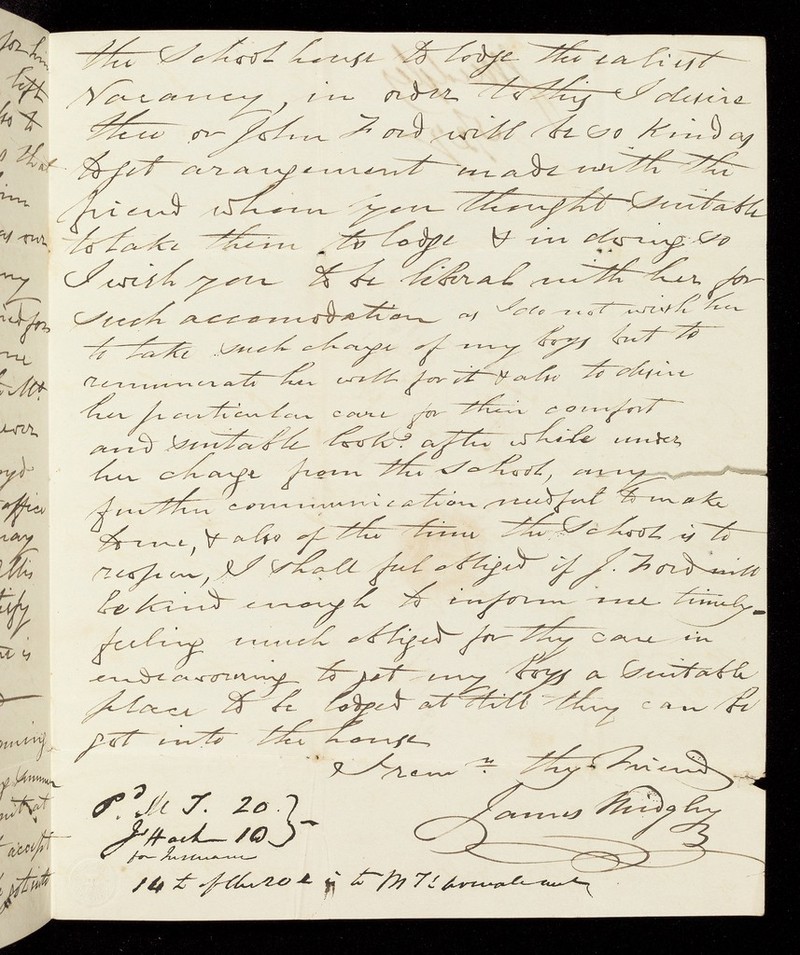 the School house to lodge the ealiest
Vacancy, in order to this I desire
thee or John Ford will be so kind as
to get arangement made with the
friend whom you thought suitable
to take them to lodge & in doing so
I wish you to be liberal with her for
such accomodation as I do not wish her
to take such charge of my boys but to
remunerate her well for it & also to desire
her particular care for their comfort
and suitable look.g after while under
her charge from the School, any
further communication needful to make
to me, & also of the time the School is to
reopen, I shall feel obliged if J. Ford will
be kind enough to inform me timely -
feeling much obliged for thy care in
endeavouring to get my Boys a suitable
place to be lodged at till they can be
got into the house
I rem.n thy Friend
James Midgley
P.d M T. 20.
J Hack - 10
for Insurance
14 of the 20 £ is to M T's
for him
left
to
that
him
as our
my
me
office
may
this
is
at
accept
got into